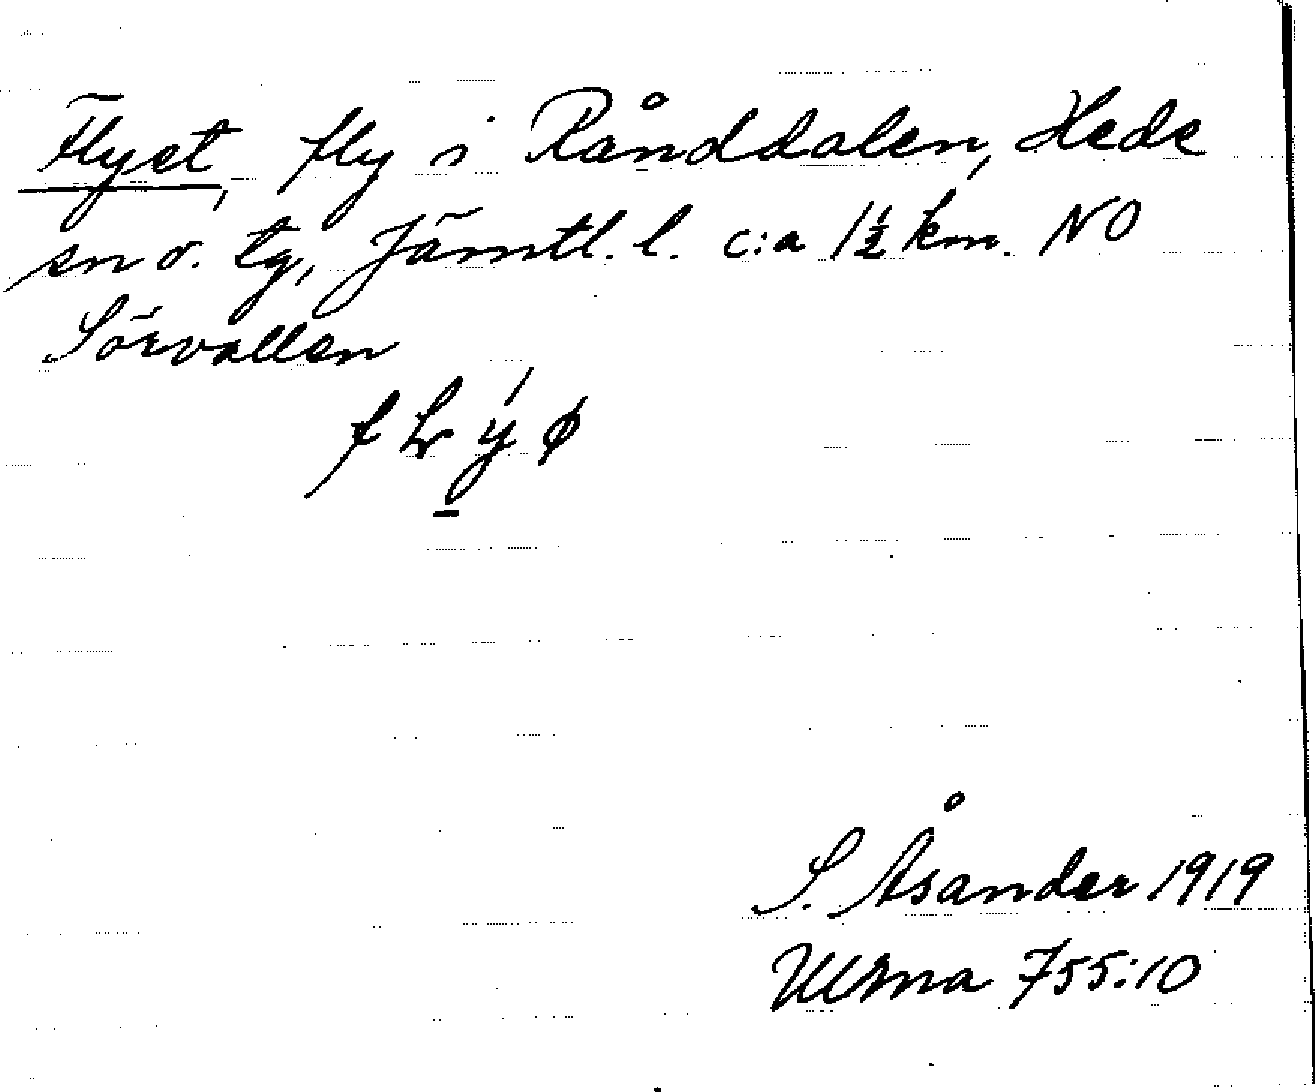 Flyet, fly i Rånddalen, Hede
sn o. tg, Jämtl. l. c:a 1½ km. NO
Sörvallen
S. Åsander 1919
ULma 755:10